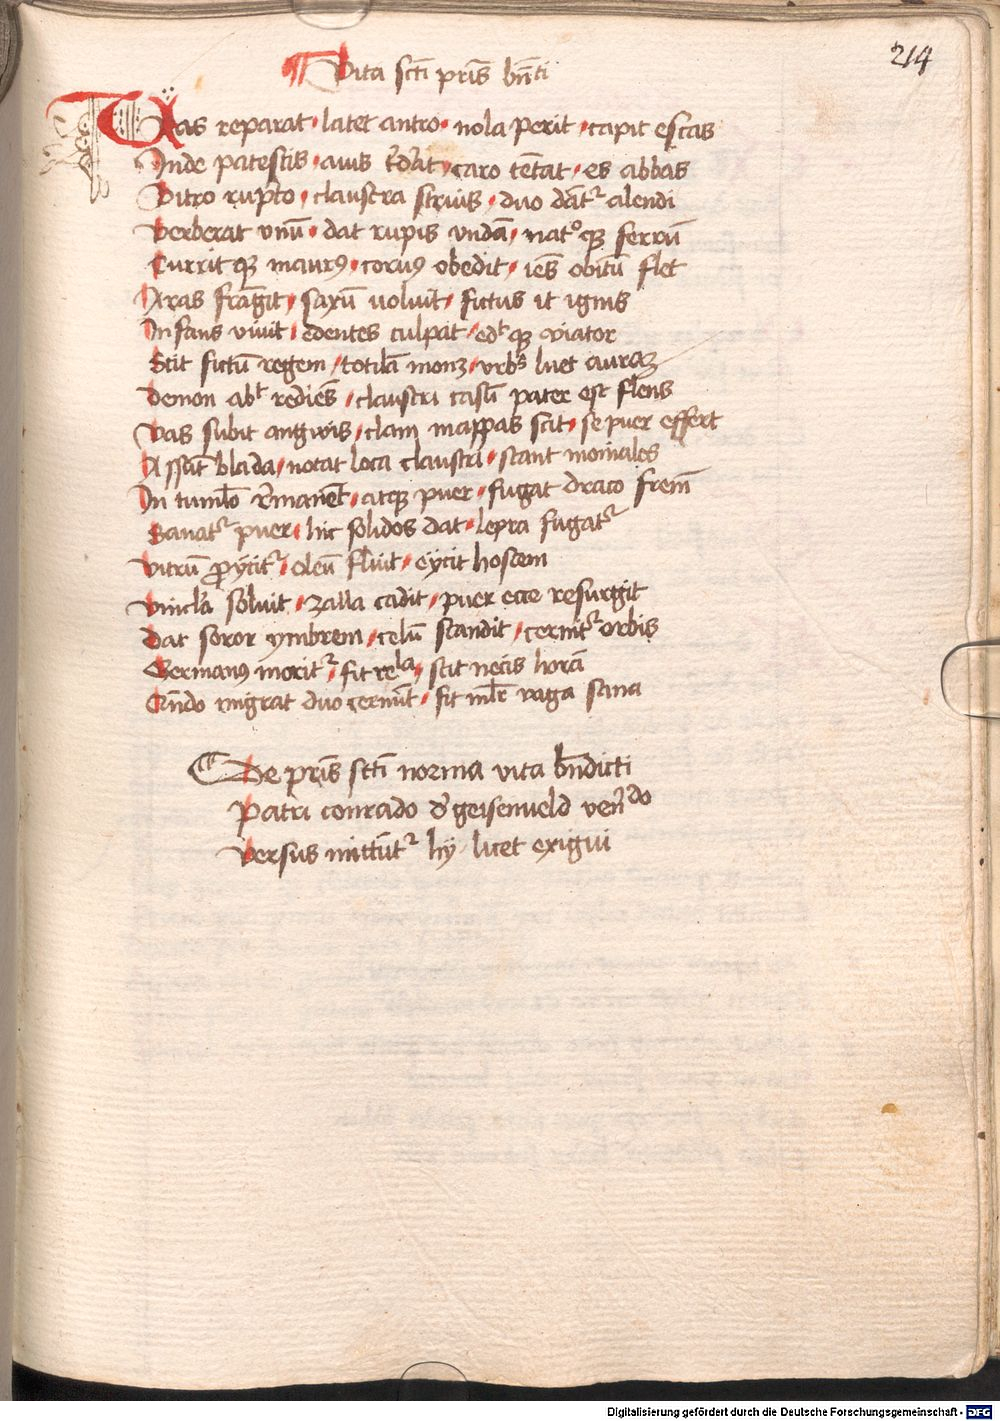 214
Vita scti pris bn̄ti
Vas reparat · latet antro · nola perit · capit escas
Inde patescis · auis · caro tētat · es abbas
Vitro rupto · claustra struis · duo dāt² alendi
Verberat vnū · dat rupis vndā · nat⁹ qȝ ferrū
Currit qȝ maurꝰ · coruꝰ obedit · iēs obitū flet
Aras frāgit · saxū uoluit · fictus it ignis
Infans viuit · edentes culpat · qȝ viator
Scit fictū regem · totilā monȝ · vrbs luet auraꝝ
Demon abᵗ rediēs · claustri casū pater est flens
Vas subit angwis · clam mappas scit · se puer effert
Assāt blada · notat loca claustri · stant moniales
In tumlo r̄manēt · atqȝ puer · fugat draco frem̄
Sanat² puer · hic solidos dat · lepra fugat²
Vitrū ꝓijcit² · oleū fluit · eijcit hostem
Vincla soluit · zalla cadit · puer ecce resurgit
Dat soror ymbrem · celū scandit · cernit² orbis
Germanꝰ morit² · fit reˡᵃ · scit necis horā
Qn̄do migrat duo cernūt · fit mlr vaga sana
De pris scti norma vita bn̄dicti
Patri conrado d' geisenueld venʳᵈᵒ
Versus mittūt² hij · licet exigui
Digitalisierung gefördert durch die Deutsche Forschungsgemeinschaft - DFG